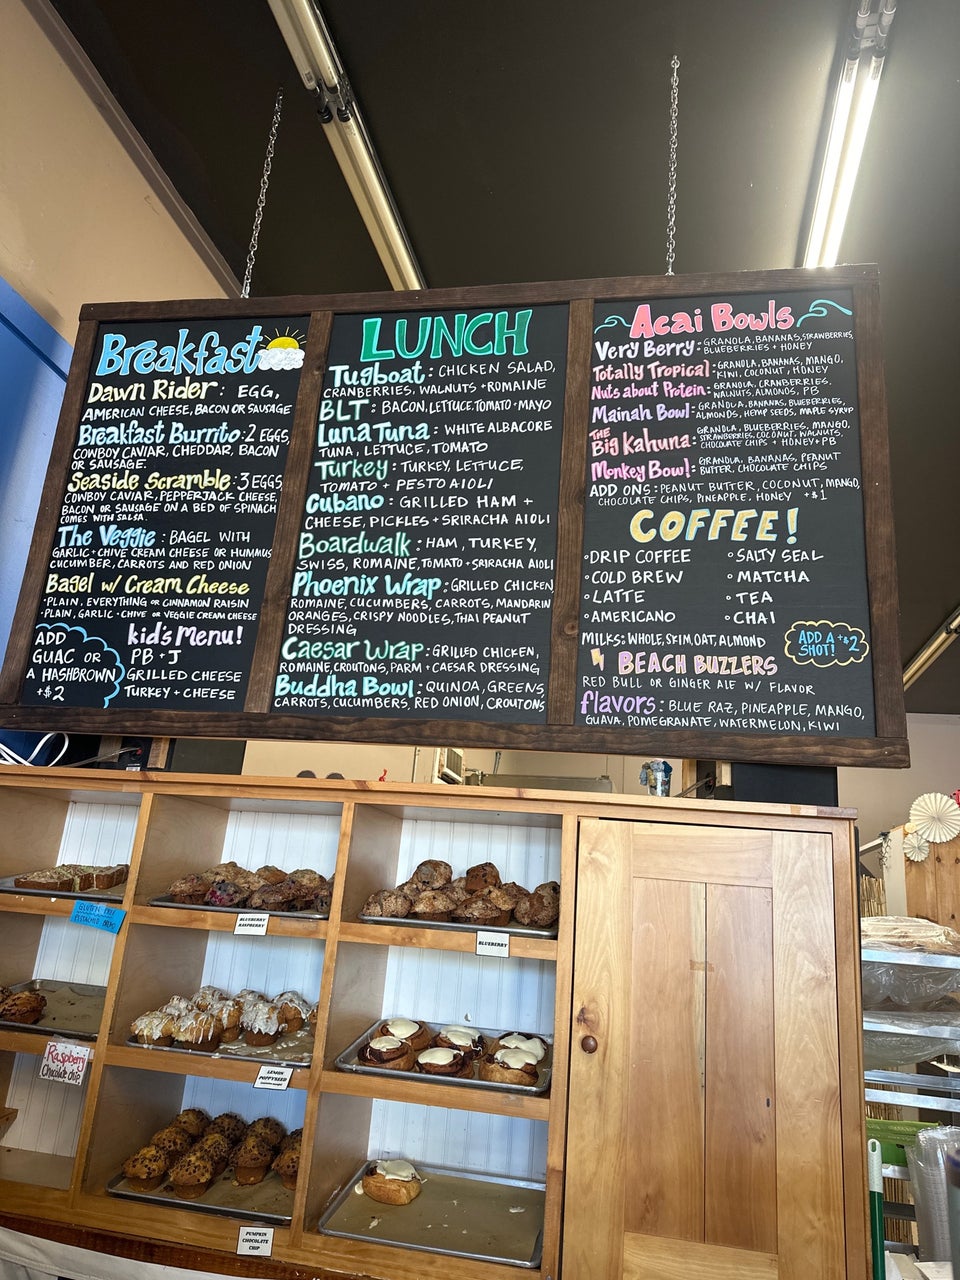 Breakfast
Dawn Rider: EGG,
AMERICAN CHEESE, BACON OR SAUSAGE
Breakfast Burrito: 2 EGGS,
COWBOY CAVIAR, CHEDDAR, BACON
OR SAUSAGE.
Seaside Scramble: 3 EGGS,
COWBOY CAVIAR, PEPPERJACK CHEESE,
BACON OR SAUSAGE ON A BED OF SPINACH
COMES WITH SALSA.
The Veggie: BAGEL WITH
GARLIC + CHIVE CREAM CHEESE OR HUMMUS
CUCUMBER, CARROTS AND RED ONION
Bagel w/ Cream Cheese
·PLAIN, EVERYTHING OR CINNAMON RAISIN
·PLAIN, GARLIC + CHIVE OR VEGGIE CREAM CHEESE
ADD
GUAC OR
A HASHBROWN
+$2
kid's Menu!
PB + J
GRILLED CHEESE
TURKEY + CHEESE
LUNCH
Tugboat: CHICKEN SALAD,
CRANBERRIES, WALNUTS + ROMAINE
BLT: BACON, LETTUCE, TOMATO + MAYO
Luna Tuna: WHITE ALBACORE
TUNA, LETTUCE, TOMATO
Turkey: TURKEY, LETTUCE,
TOMATO + PESTO AIOLI
Cubano: GRILLED HAM +
CHEESE, PICKLES + SRIRACHA AIOLI
Boardwalk: HAM, TURKEY,
SWISS, ROMAINE, TOMATO + SRIRACHA AIOLI
Phoenix Wrap: GRILLED CHICKEN
ROMAINE, CUCUMBERS, CARROTS, MANDARIN
ORANGES, CRISPY NOODLES, THAI PEANUT
DRESSING
Caesar Wrap: GRILLED CHICKEN,
ROMAINE, CROUTONS, PARM + CAESAR DRESSING
Buddha Bowl: QUINOA, GREENS,
CARROTS, CUCUMBERS, RED ONION, CROUTONS
Acai Bowls
Very Berry: GRANOLA, BANANAS, STRAWBERRIES,
BLUEBERRIES + HONEY
Totally Tropical: GRANOLA, BANANAS, MANGO,
KIWI, COCONUT, HONEY
Nuts about Potein: GRANOLA, CRANBERRIES,
WALNUTS, ALMONDS, PB
Mainah Bowl: GRANOLA, BANANAS, BLUEBERRIES,
ALMONDS, HEMP SEEDS, MAPLE SYRUP
THE Big Kahuna: GRANOLA, BLUEBERRIES, MANGO,
STRAWBERRIES, COCONUT, WALNUTS,
CHOCOLATE CHIPS + HONEY + PB
Monkey Bowl: GRANOLA, BANANAS, PEANUT
BUTTER, CHOCOLATE CHIPS
ADD ONS: PEANUT BUTTER, COCONUT, MANGO,
CHOCOLATE CHIPS, PINEAPPLE, HONEY +$1
COFFEE!
·DRIP COFFEE
·COLD BREW
·LATTE
·AMERICANO
·SALTY SEAL
·MATCHA
·TEA
·CHAI
MILKS: WHOLE, SKIM, OAT, ALMOND
ADD A
SHOT! +$2
BEACH BUZZERS
RED BULL OR GINGER ALE W/ FLAVOR
flavors: BLUE RAZ, PINEAPPLE, MANGO,
GUAVA, POMEGRANATE, WATERMELON, KIWI
GLUTEN FREE
BLUEBERRY
RASPBERRY
BLUEBERRY
Raspberry
Chocolate chip
LEMON
POPPYSEED
PUMPKIN
CHOCOLATE
CHIP